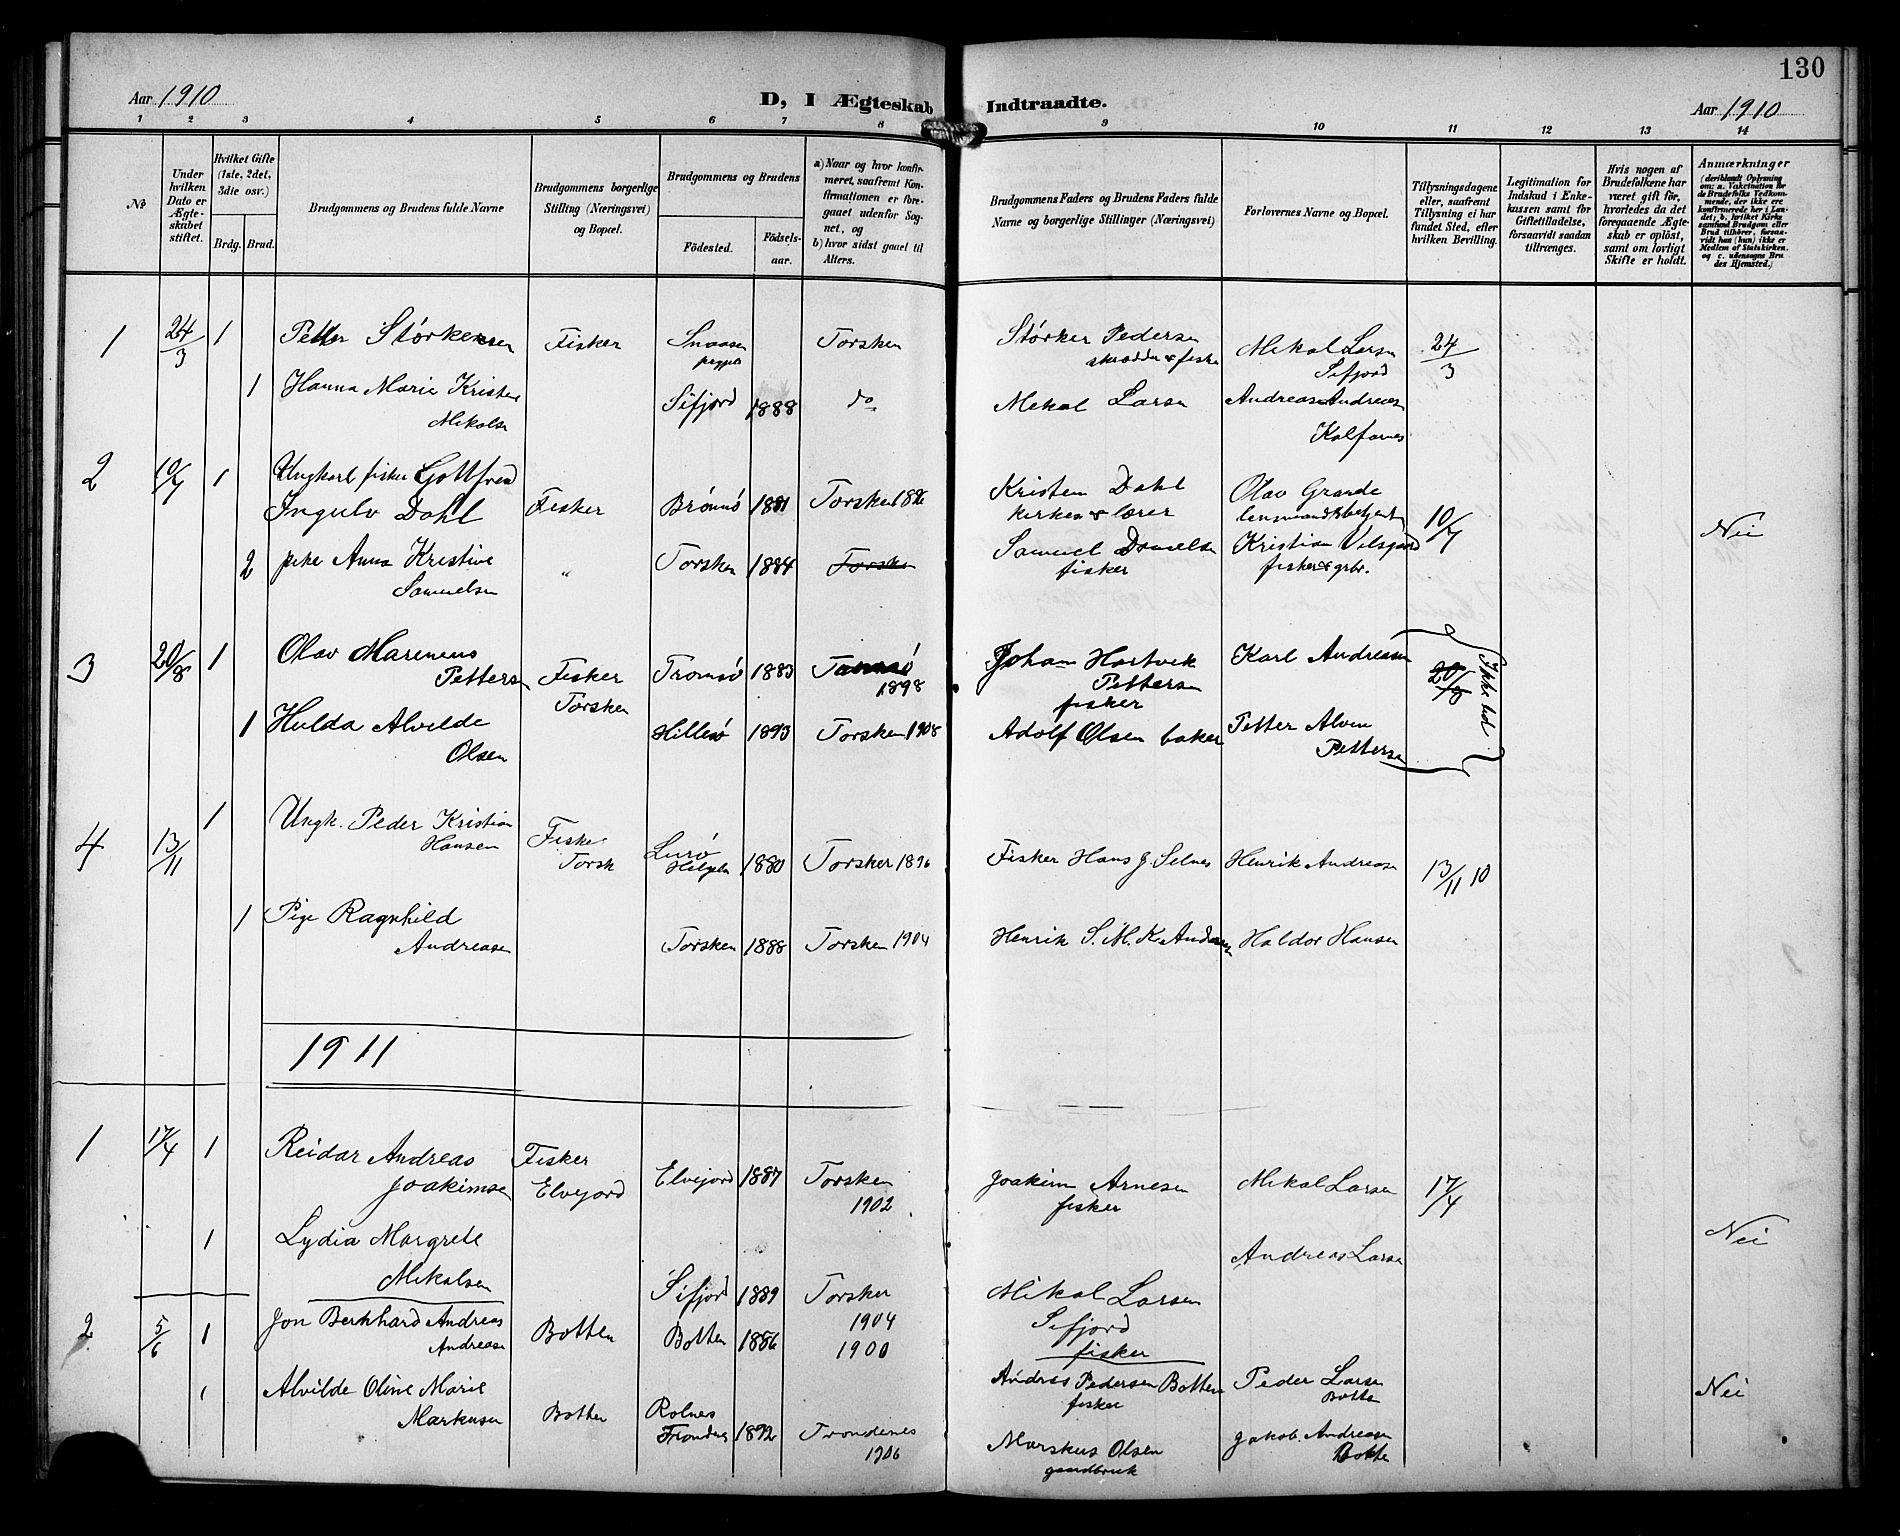 130
Aar 1910
D, I Ægteskab Indtraadte.
Aar 1910
1 2 3 4 5 6 7 8 9 10 11 12 13 14
№
Under hvilken Dato er Ægteskabet stiftet.
Hvilket Gifte (1ste, 2det, 3die osv.)
Brdg.
Brud.
Brudgommens og Brudens fulde Navne
Brudgommens borgerlige Stilling (Næringsvei) og Bopæl.
Brudgommens og Brudens
Fødested.
Fødselsaar.
a) Naar og hvor konfirmeret, saafremt Konfirmationen er foregaaet udenfor Sognet, og
b) hvor sidst gaaet til Alters.
Brudgommens Faders og Brudens Faders fulde Navne og borgerlige Stillinger (Næringsvei)
Forlovernes Navne og Bopæl.
Tillysningsdagene eller, saafremt Tillysning ei har fundet Sted, efter hvilken Bevilling.
Legitimation for Indskud i Enkekassen samt for Giftetilladelse, forsaavidt saadan tiltrænges.
Hvis nogen af Brudefolkene har været gift før, hvorledes da det foregaaende Ægteskab er opløst, samt om lovligt Skifte er holdt.
Anmærkninger
(deriblandt Oplysning om: a. Vakcination for de Brudefolks Vedkommende, der ikke ere konfirmerede her i Landet; b. hvilket Kirkesamfund Brudgom eller Brud tilhører, forsaavidt han (hun) ikke er Medlem af Statskirken, og c. udensogns Brudes Hjemsted.)
1 24/3 1 Petter Størkersen Fisker Snaasen Torsken Størker Pedersen Mikal Larsen 24/3
skrædder & fisker Sifjord
1 Hanna Marie Kristine Sifjord 1888 do Mekal Larsen Andreas Andreasen
Mikalsen Kalfarnes
2 10/7 1 Ungkarl fisker Gottfred
Ingulv Dahl Fisker Brønnø 1881 Torsken 1896 Kristen Dahl Olav Grande 10/7 Nei
kirkes. & lærer lensmandsbetjent
2 pike Anna Kristine " Torsken 1884 Torsken Samuel Danielsen Kristian Vilsgaard
Samuelsen fisker fisker & grbr.
3 20/8 1 Olav Marenius Johan Hartvik Karl Andreasen
Pettersen Fisker Tromsø 1883 Tromsø Pettersen 20/8
Torsken 1898 fisker
1 Hulda Alvilde Hillesø 1893 Torsken 1908 Adolf Olsen baker Petter Alvin
Olsen Pettersen
4 13/11 1 Ungk. Peder Kristian Fisker Lurø 1880 Torsken 1896 Fisker Hans J. Selnes Henrik Andreasen 13/11 10
Hansen Torsk
1 Pige Ragnhild
Andreasen Torsken 1888 Torsken 1904 Henrik S. M. K. Andreasen Haldor Hansen
1911
1 17/4 1 Reidar Andreas Fisker Elvejord 1887 Torsken Joakim Arnesen Mikal Larsen 17/4
Joakimsen Elvejord 1902 fisker
1 Lydia Margrete Andreas Larsen Nei
Mikalsen Sifjord 1889 Torsken Mikal Larsen
1904 Sifjord
fisker
2 5/6 1 Jon Berkhard Andreas Botten Botten 1886 1900
Andreasen Andreas Pedersen Botten Peder Larsen
fisker Botten
1 Alvilde Oline Marie Nei
Markusen Botten Rolnes 1892 Trondenes Markus Olsen Jakob Andreasen
Trondenes 1906 gaardbruk Botten